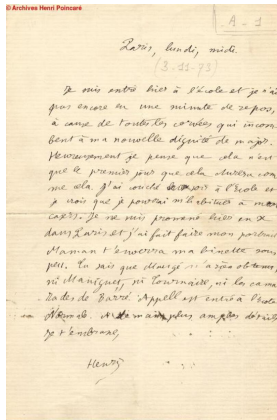 © Archives Henri Poincaré
A - 1
Paris, lundi, midi.
(3-11-73)
Je suis entré hier à l'École et je n'ai
pas encore eu une minute de repos,
à cause de toutes les corvées qui incom
bent à ma nouvelle dignité de major.
Heureusement je pense que cela n'est
que le premier jour que cela durera com
me cela. J'ai couché à l'École et
je crois que je pourrai m'habituer à mon
casert. Je me suis promené hier en x
dans Paris et j'ai fait faire mon portrait
Maman t'enverra ma binette sous
peu. Tu sais que n'a rien obtenu,
ni Mauniguet, ni Tournaire, ni les cama
rades de Barré. Appell est entré à l'École
Normale. A demain plus amples détails
Je t'embrasse,
Henri